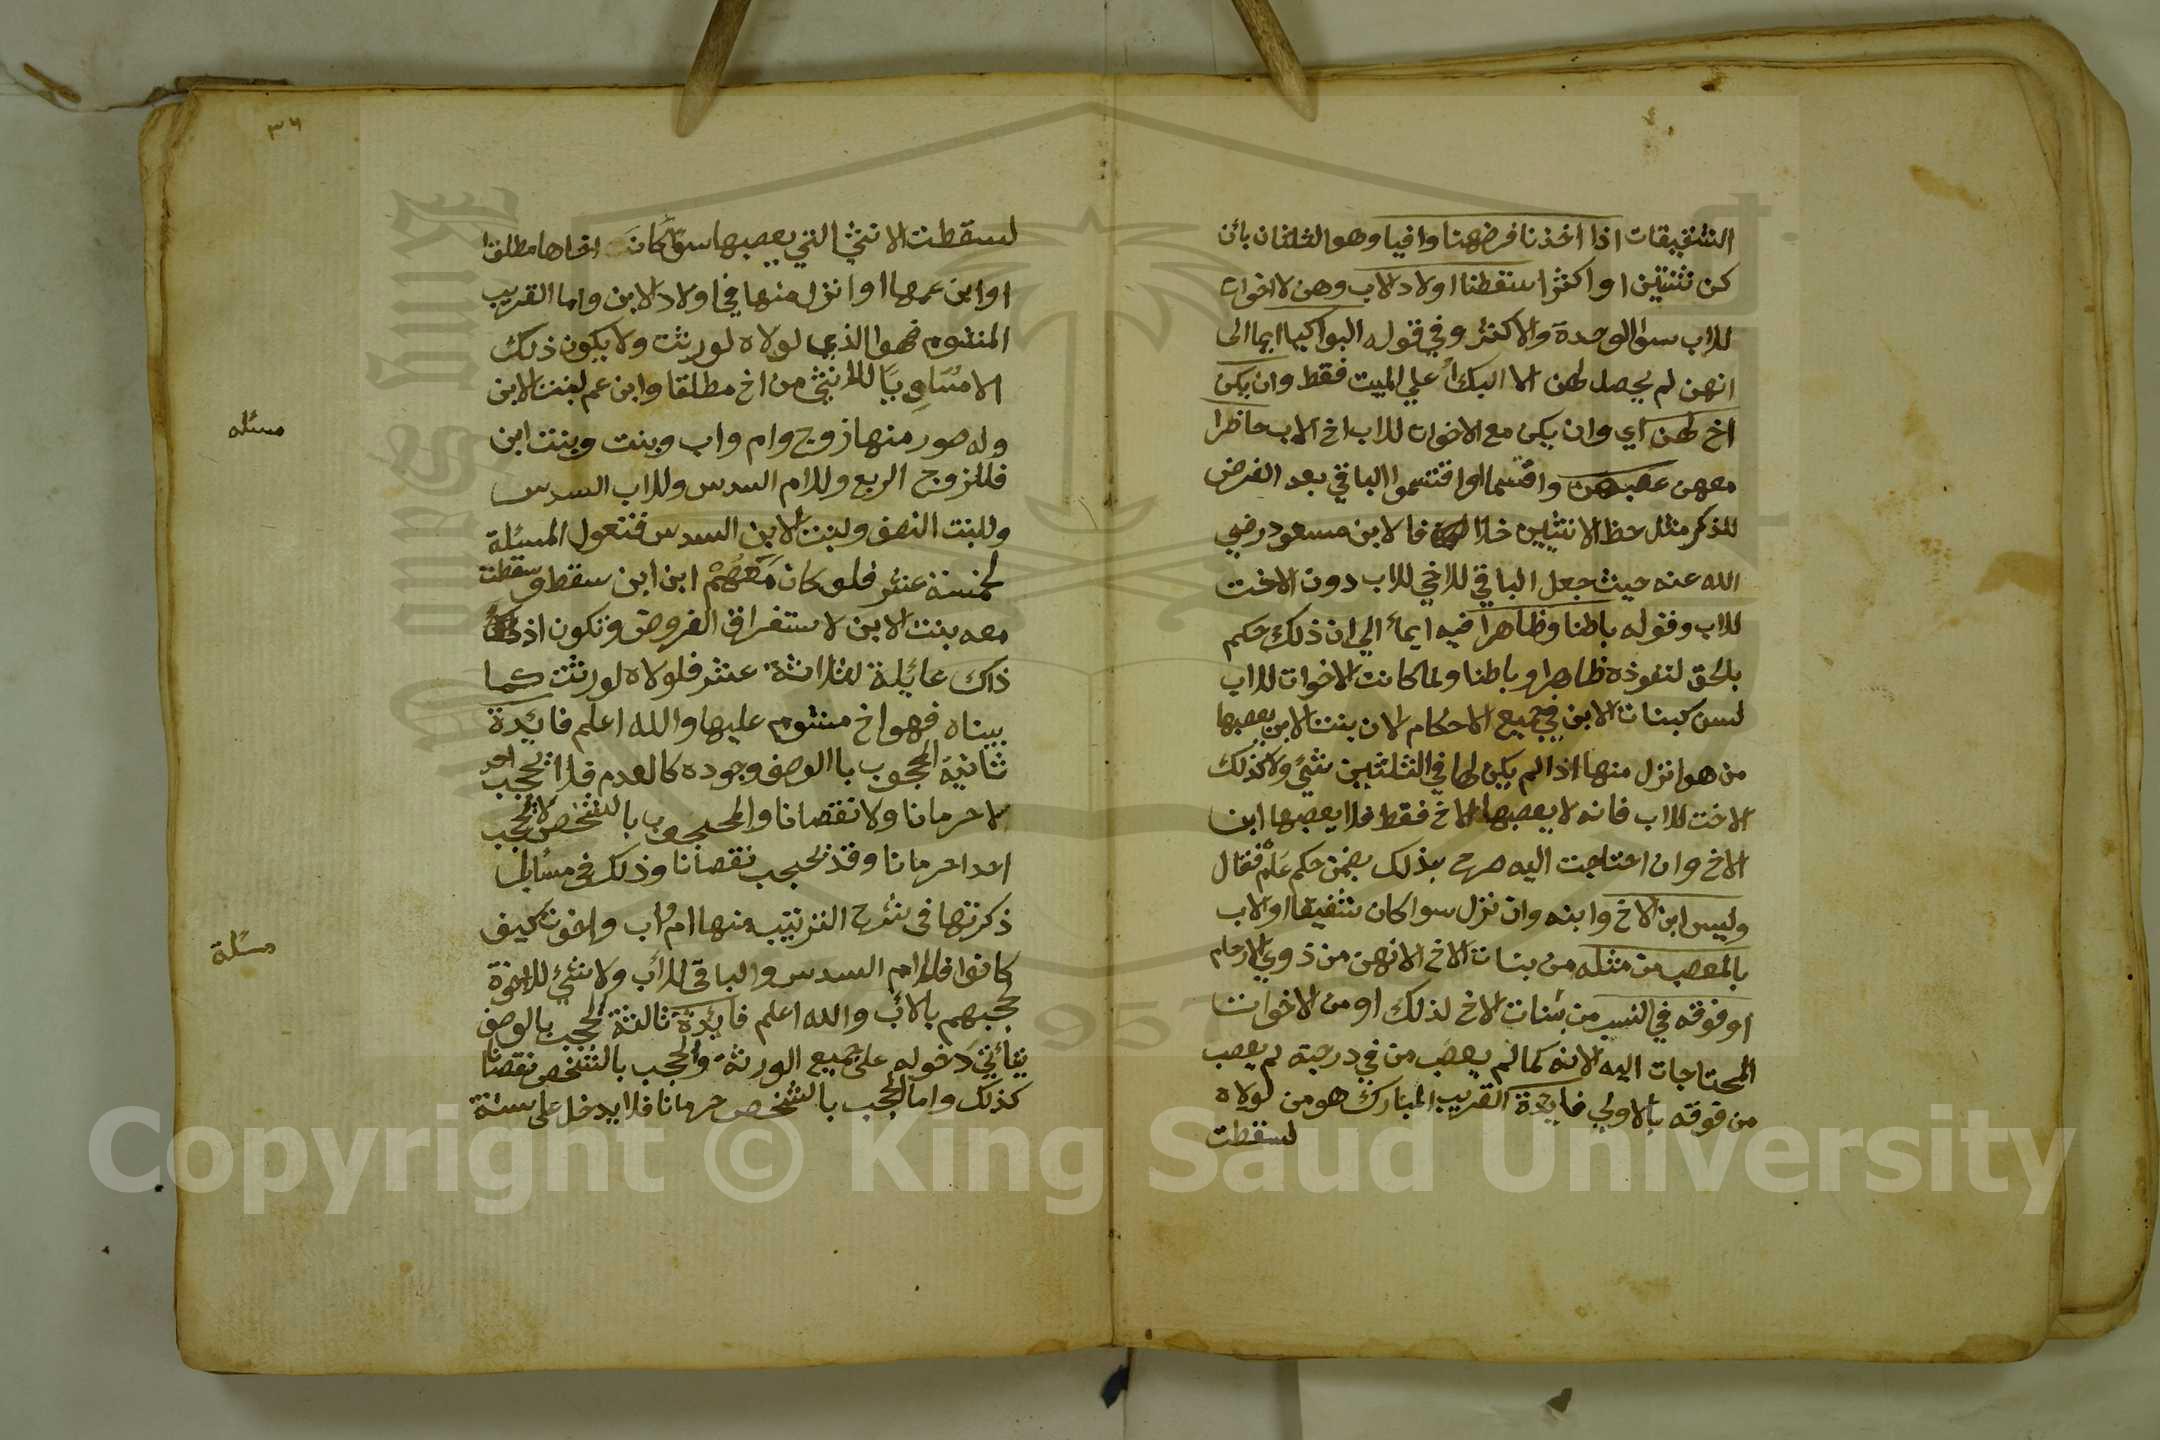 الشقيقات اذا اخذنا فرضهنا وافيا وهو الثلثان بأن
كن ثنتين او اكثرا سقطنا اولاد لاب وهن لاخوات
للاب سوا الوحدة والاكثر وفي قوله البواكيا ايما الى
انهن لم يحصل لهن الا البكأ علي الميت فقط وان يكن
اخ لهن اي وان يكن مع الاخوات للاب اخ الاب حاظرا
معهن عصبهن واقتسما لوا قتسموا الباقي بعد الفرض
للذكر مثل حظ الانثيين خلا فا لابن مسعود رضي
الله عنه حيث جعل الباقي للاخي للاب دون الاخت
للاب وقوله باطنا وظاهرا فيه ايمأ الي ان ذلك حكم
بلحق لنفوذه ظاهرا وباطنا ولما كانت الاخوات للاب
لسن كبنات الابن في جميع الاحكام لان بنت الابن يعصبها
من هو انزل منها اذا لم يكن لها في الثلثين شئي ولا كذلك
الاخت للاب فانه لا يعصبها الاخ فقط فلا يعصبها ابن
الاخ وان احتاجت اليه صرح بذلك بضمن حكم علم فقال
وليس ابن الاخ وابنه وان نزل سوا كان شقيقا اولاب
بالمعصب من مثله من بنات الاخ لانهن من ذوي الارحام
او فوقه في النسب من بنات الاخ لذلك او من الاخوات
المحتاجات اليه لانه كما لم يعصب من في درجته لم يعصب
من فوقه بالاولي فايدة القريب المبارك هو من لولاه
لسقطت
٣٦
لسقطت الانثي التي يعصبها سوأ كان اخاها مطلقا
او ابن عمها او انزل منها في اولاد الابن واما القريب
المشوم فهو الذي لولاه لورثت ولا يكون ذلك
الا مساويا للانثي من اخ مطلقا وابن عم لبنت الابن
وله صور منها زوج وام واب وبنت وبنت ابن
فللزوج الربع وللام السدس وللاب السدس
وللبنت النصف ولبنت الابن السدس فتعول المسئلة
لخمسة عشر فلو كان معهم ابن ابن سقط وسقطت
معه بنت الابن لاستغراق الفروض وتكون اذ
ذاك عائلة لثلاثة عشر فلولاه لورثت كما
بيناه فهو اخ مشوم عليها والله اعلم فايدة
ثانية المحجوب باالوصف وجوده كالعدم فلا يحجب احد
لا حرمانا ولا نقصانا والمحجوب بالشخص لا يحجب
احدا حرمانا وقد يحجب نقصانا وذلك في مسايل
ذكرتها في شرح الترتيب منها ام واب واخوة كيف
كانوا فللام السدس والباقي للأب ولا شئي للاخوة
لحجبهم بالأب والله اعلم فايدة ثالثة الحجب بالوصف
يتأتي دخوله على جميع الورثة والحجب بالشخص نقصانا
كذلك واما الحجب بالشخص حرمانا فلا يدخل على ستة
مسئله
مسئلة
King Saud University
1957
Copyright © King Saud University